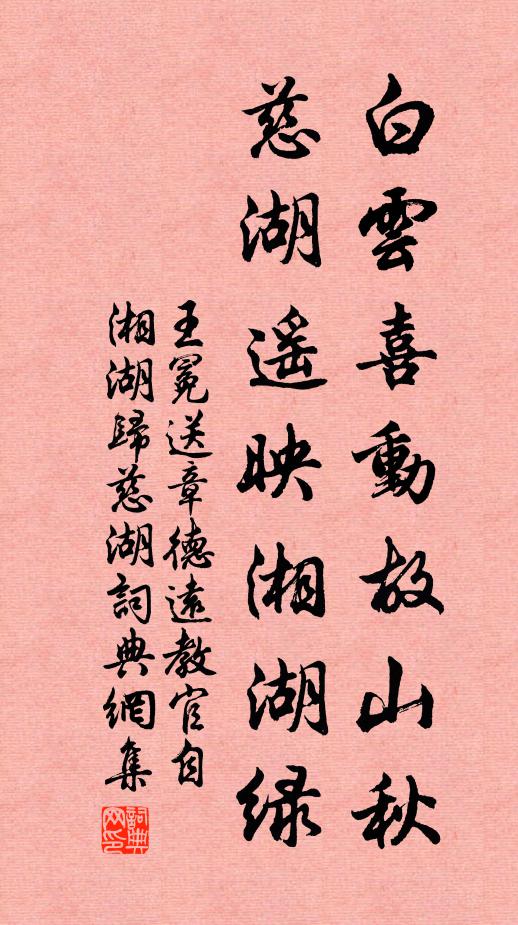 白雲喜動故山秋
慈湖遥映湘湖緑
王冕送章德遠教官自
湘湖歸慈湖詞典網集
詞典
网印